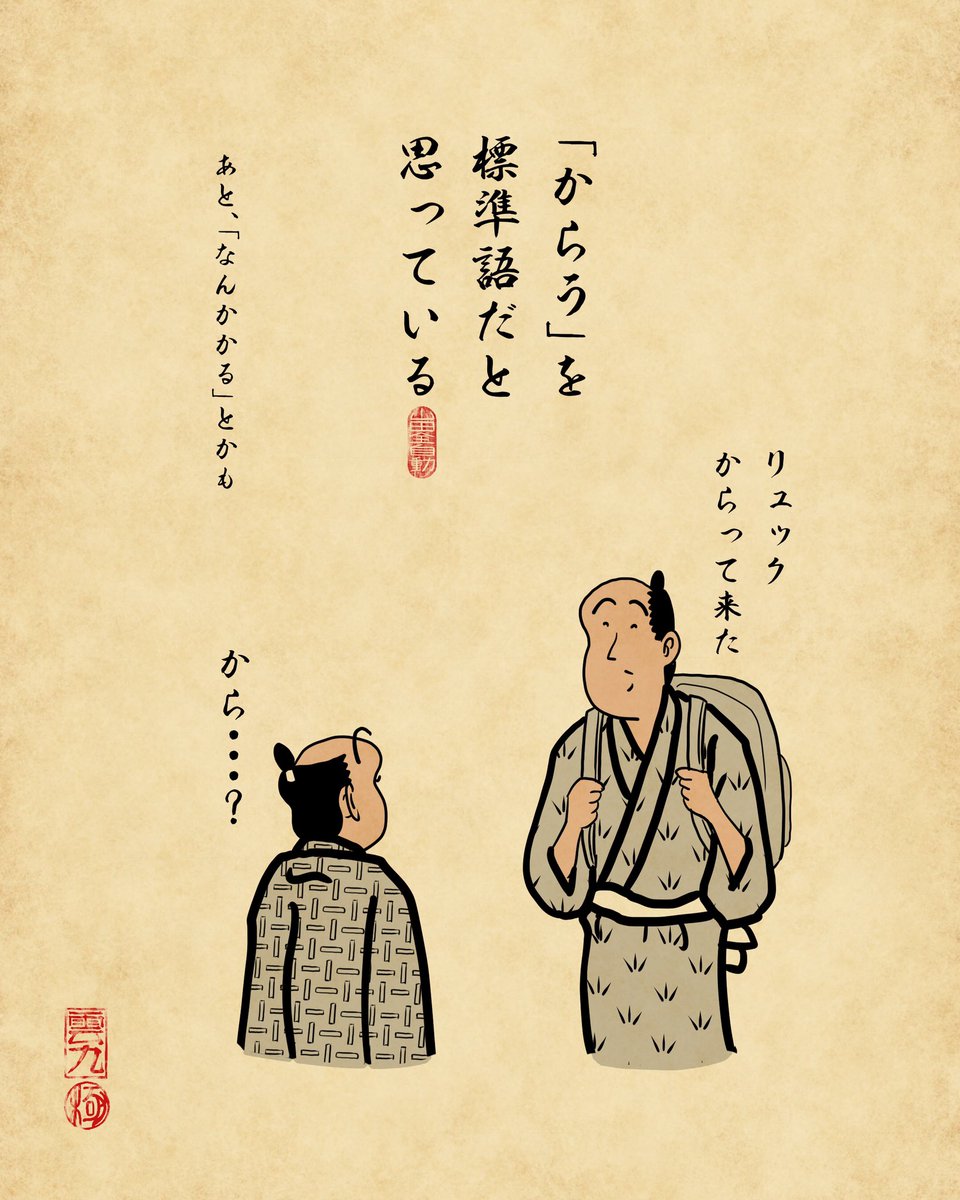 「からう」を
標準語だと
思っている
あと、「なんかかる」とかも
リュック
からって来た
から・・・?
雲九